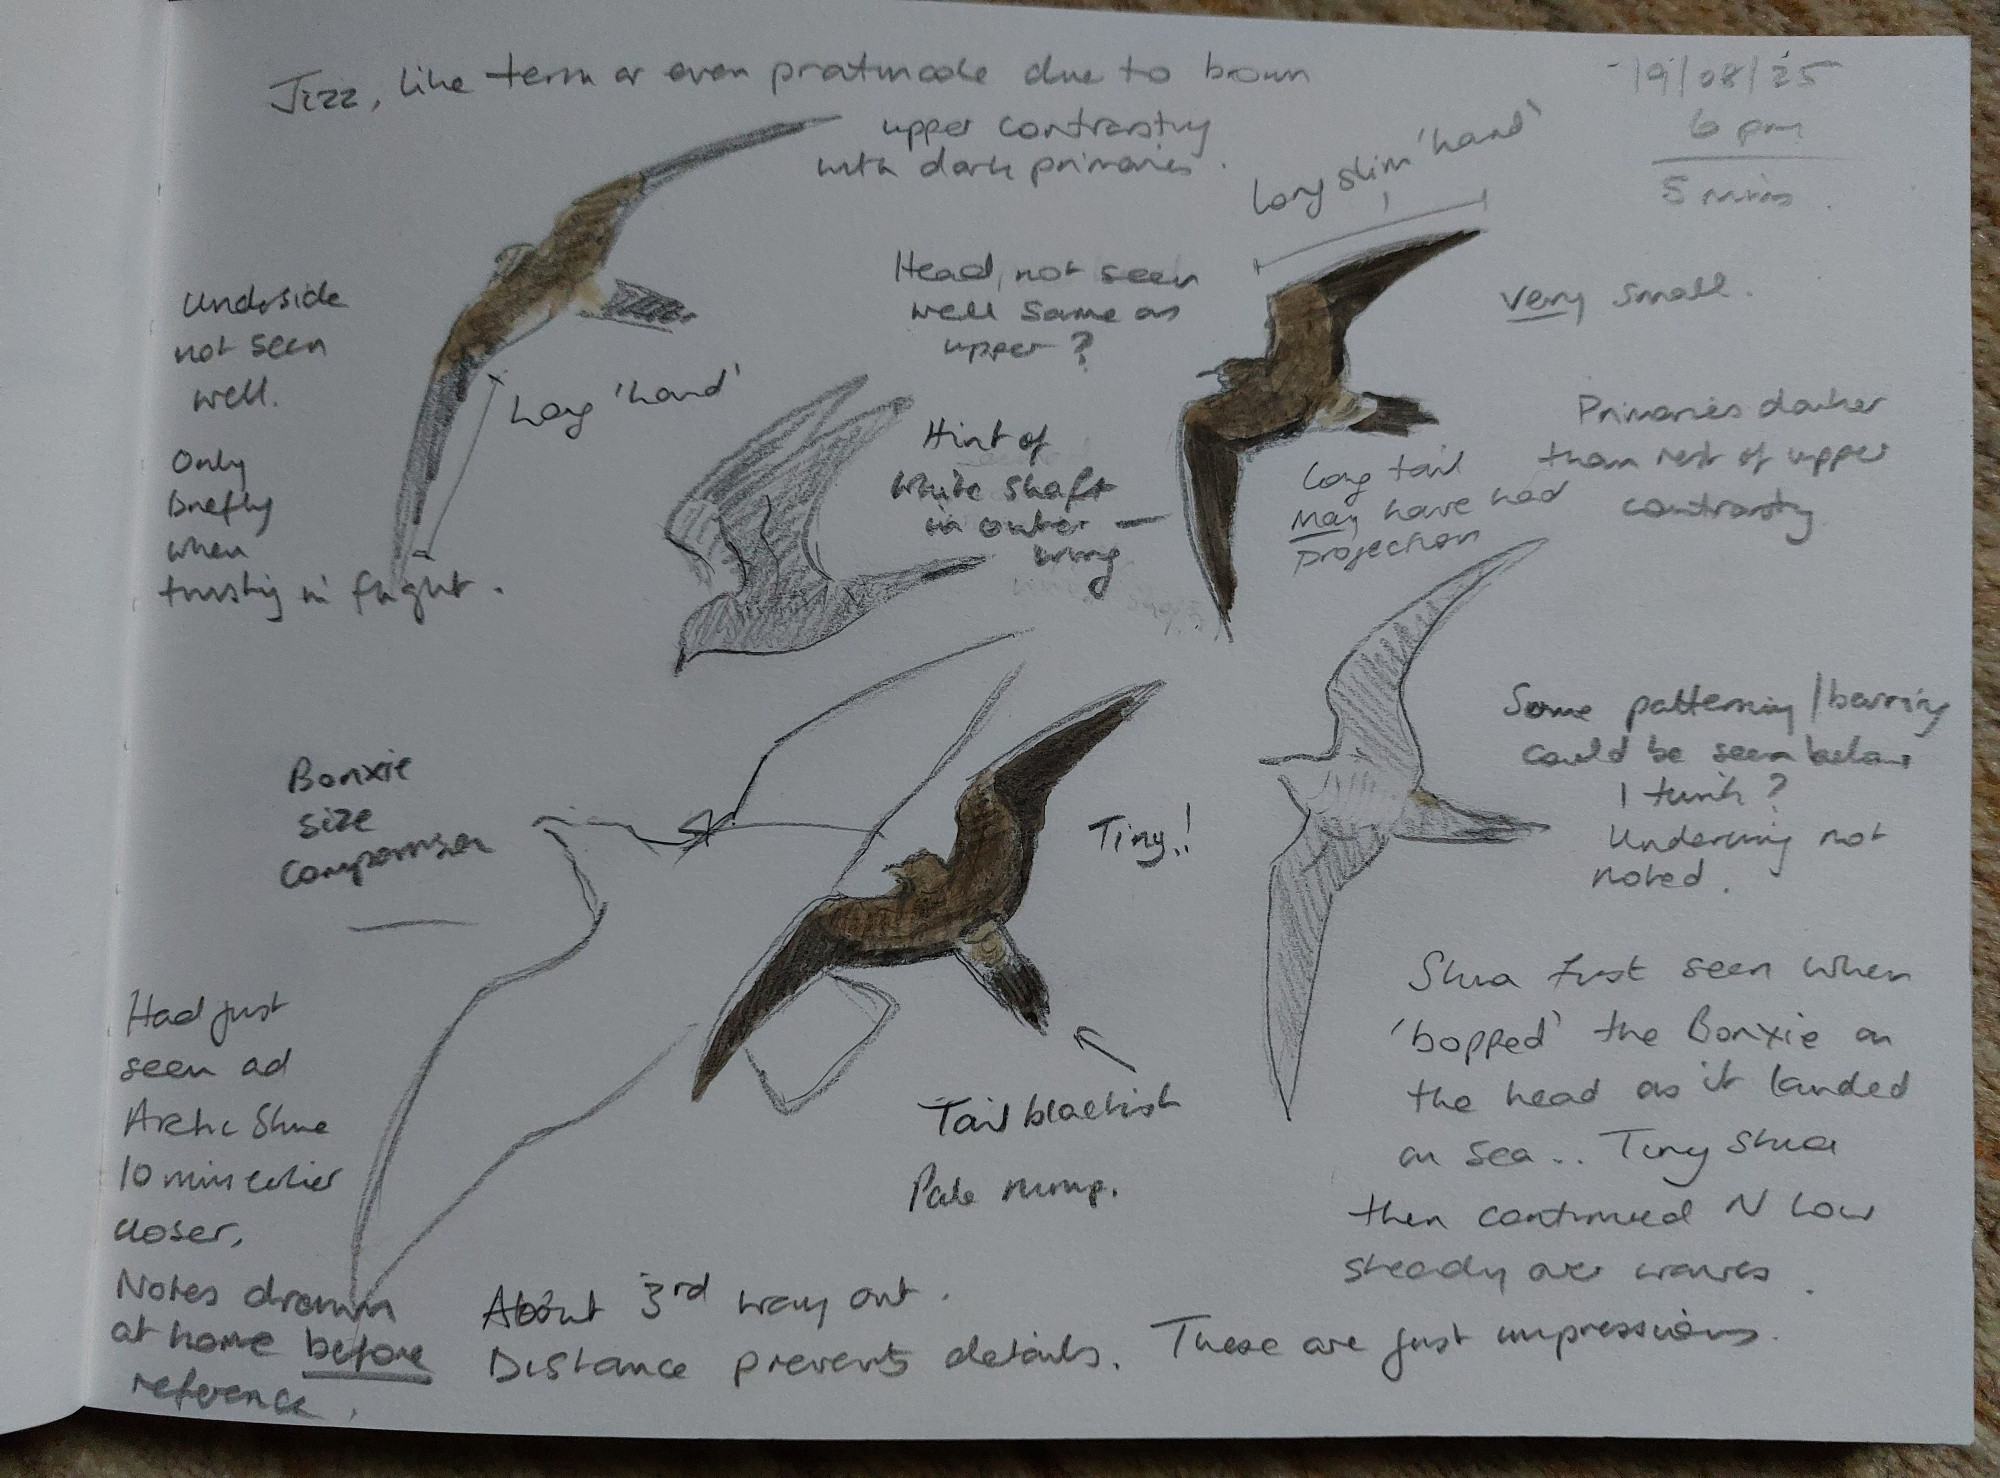 Jizz, like tern or even pratincole due to brown
upper contrasting
with dark primaries.
19/08/25
6 pm
5 mins.
Long slim 'hand'
Underside
not seen
well.
Only
briefly
when
twisting in flight.
Long 'hand'
Head, not seen
well same as
upper?
Very small.
Hint of
white shaft
in outer
wing
Long tail
may have had
projection
Primaries darker
than rest of upper
contrasting
Bonxie
size
comparison
Tiny!
Some patterning/barring
could be seen below
I think?
Underwing not
noted.
Had just
seen ad
Arctic Skua
10 mins earlier
closer,
Notes drawn
at home before
reference.
Tail blackish
Pale rump.
Skua first seen when
'bopped' the Bonxie on
the head as it landed
on sea.. Tiny Skua
then continued N low
steady over waves.
About 3rd way out.
Distance prevents details. These are just impressions.